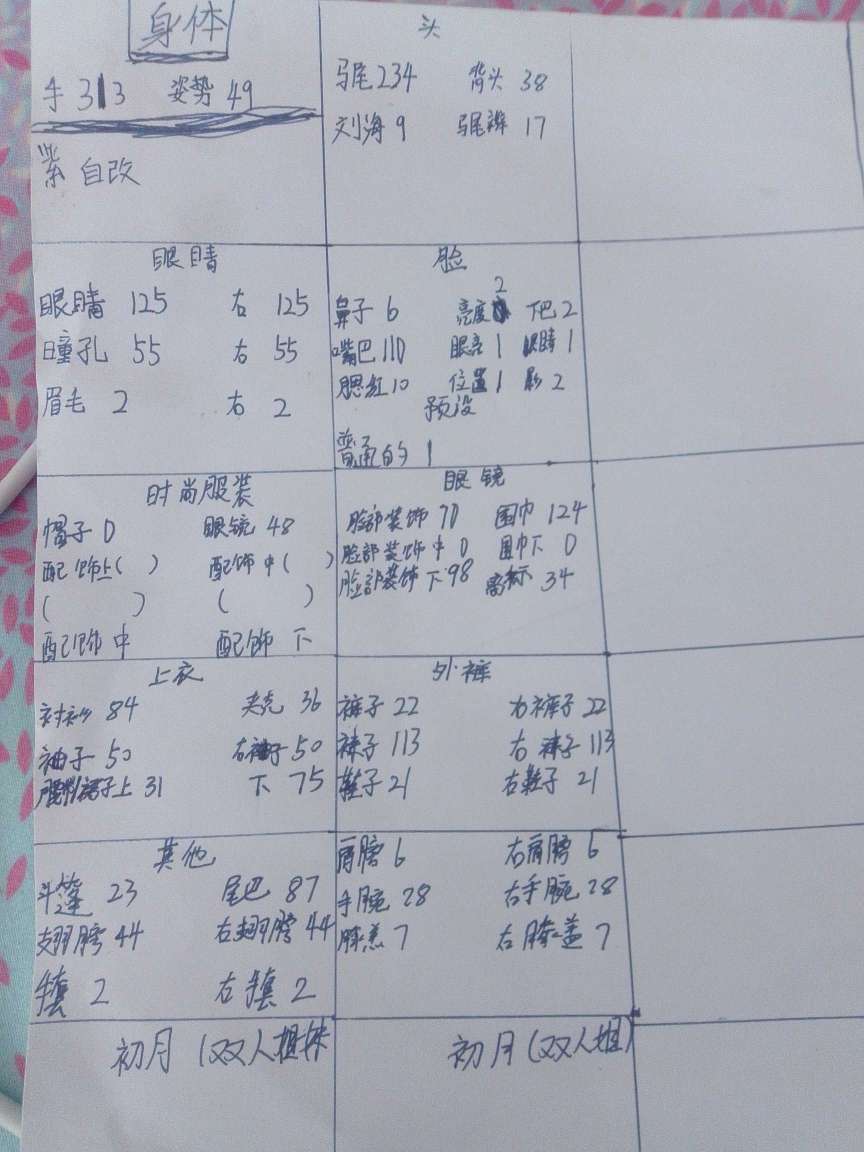 身体
手 313 姿势 49
紫 自改
头
马尾 234 背头 38
刘海 9 马尾辫 17
眼睛
眼睛 125 右 125
瞳孔 55 右 55
眉毛 2 右 2
脸
鼻子 6 亮度 2 下巴 2
嘴巴 110 眼亮 1 眼睛 1
腮红 10 位置 1 影 2
预设
普通的 1
时尚服装
帽子 0 眼镜 48
配饰上( ) 配饰中( )
( ) ( )
配饰中 配饰下
眼镜
脸部装饰 70 围巾 124
脸部装饰中 0 围巾下 0
脸部装饰下 98 34
上衣
衬衫 84 夹克 36
袖子 50 右袖子 50
裙子上 31 下 75
外裤
裤子 22 右裤子 22
袜子 113 右袜子 113
鞋子 21 右鞋子 21
其他
斗篷 23 尾巴 87
翅膀 44 右翅膀 44
手套 2 右手套 2
肩膀 6 右肩膀 6
手腕 28 右手腕 28
膝盖 7 右膝盖 7
初月(双人姐妹
初月(双人姐)